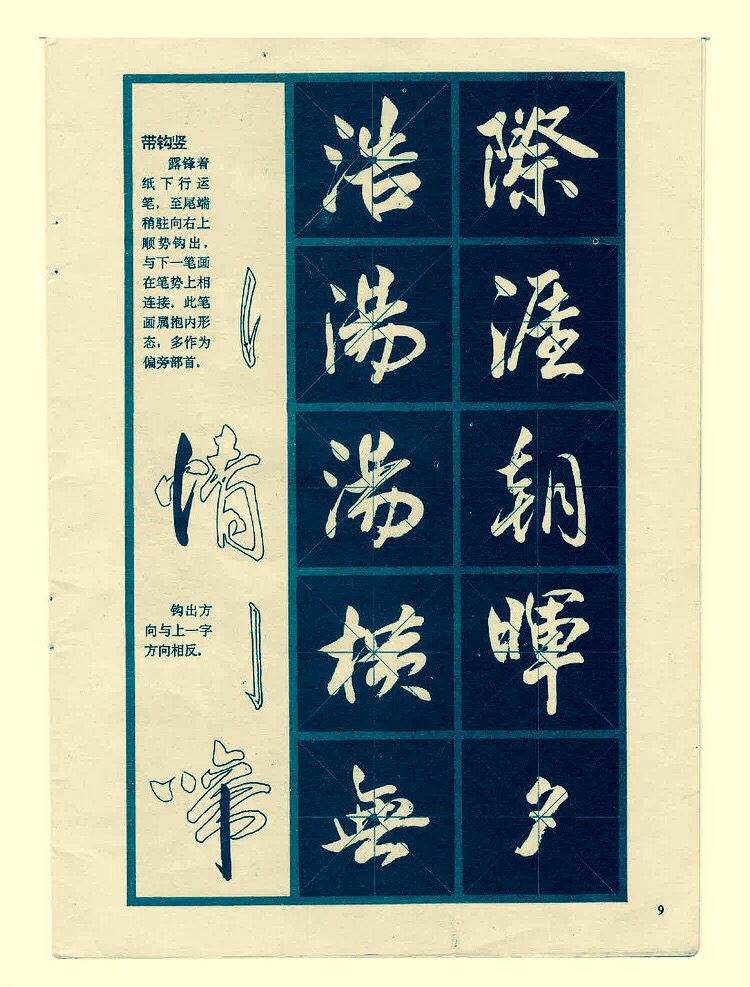 带钩竖
露锋着
纸下行运
笔，至尾端
稍驻向右上
顺势钩出，
与下一笔画
在笔势上相
连接。此笔
画属抱内形
态，多作为
偏旁部首。
情
钩出方
向与上一字
方向相反。
浩湯湯横無
際涯朝暉夕
9